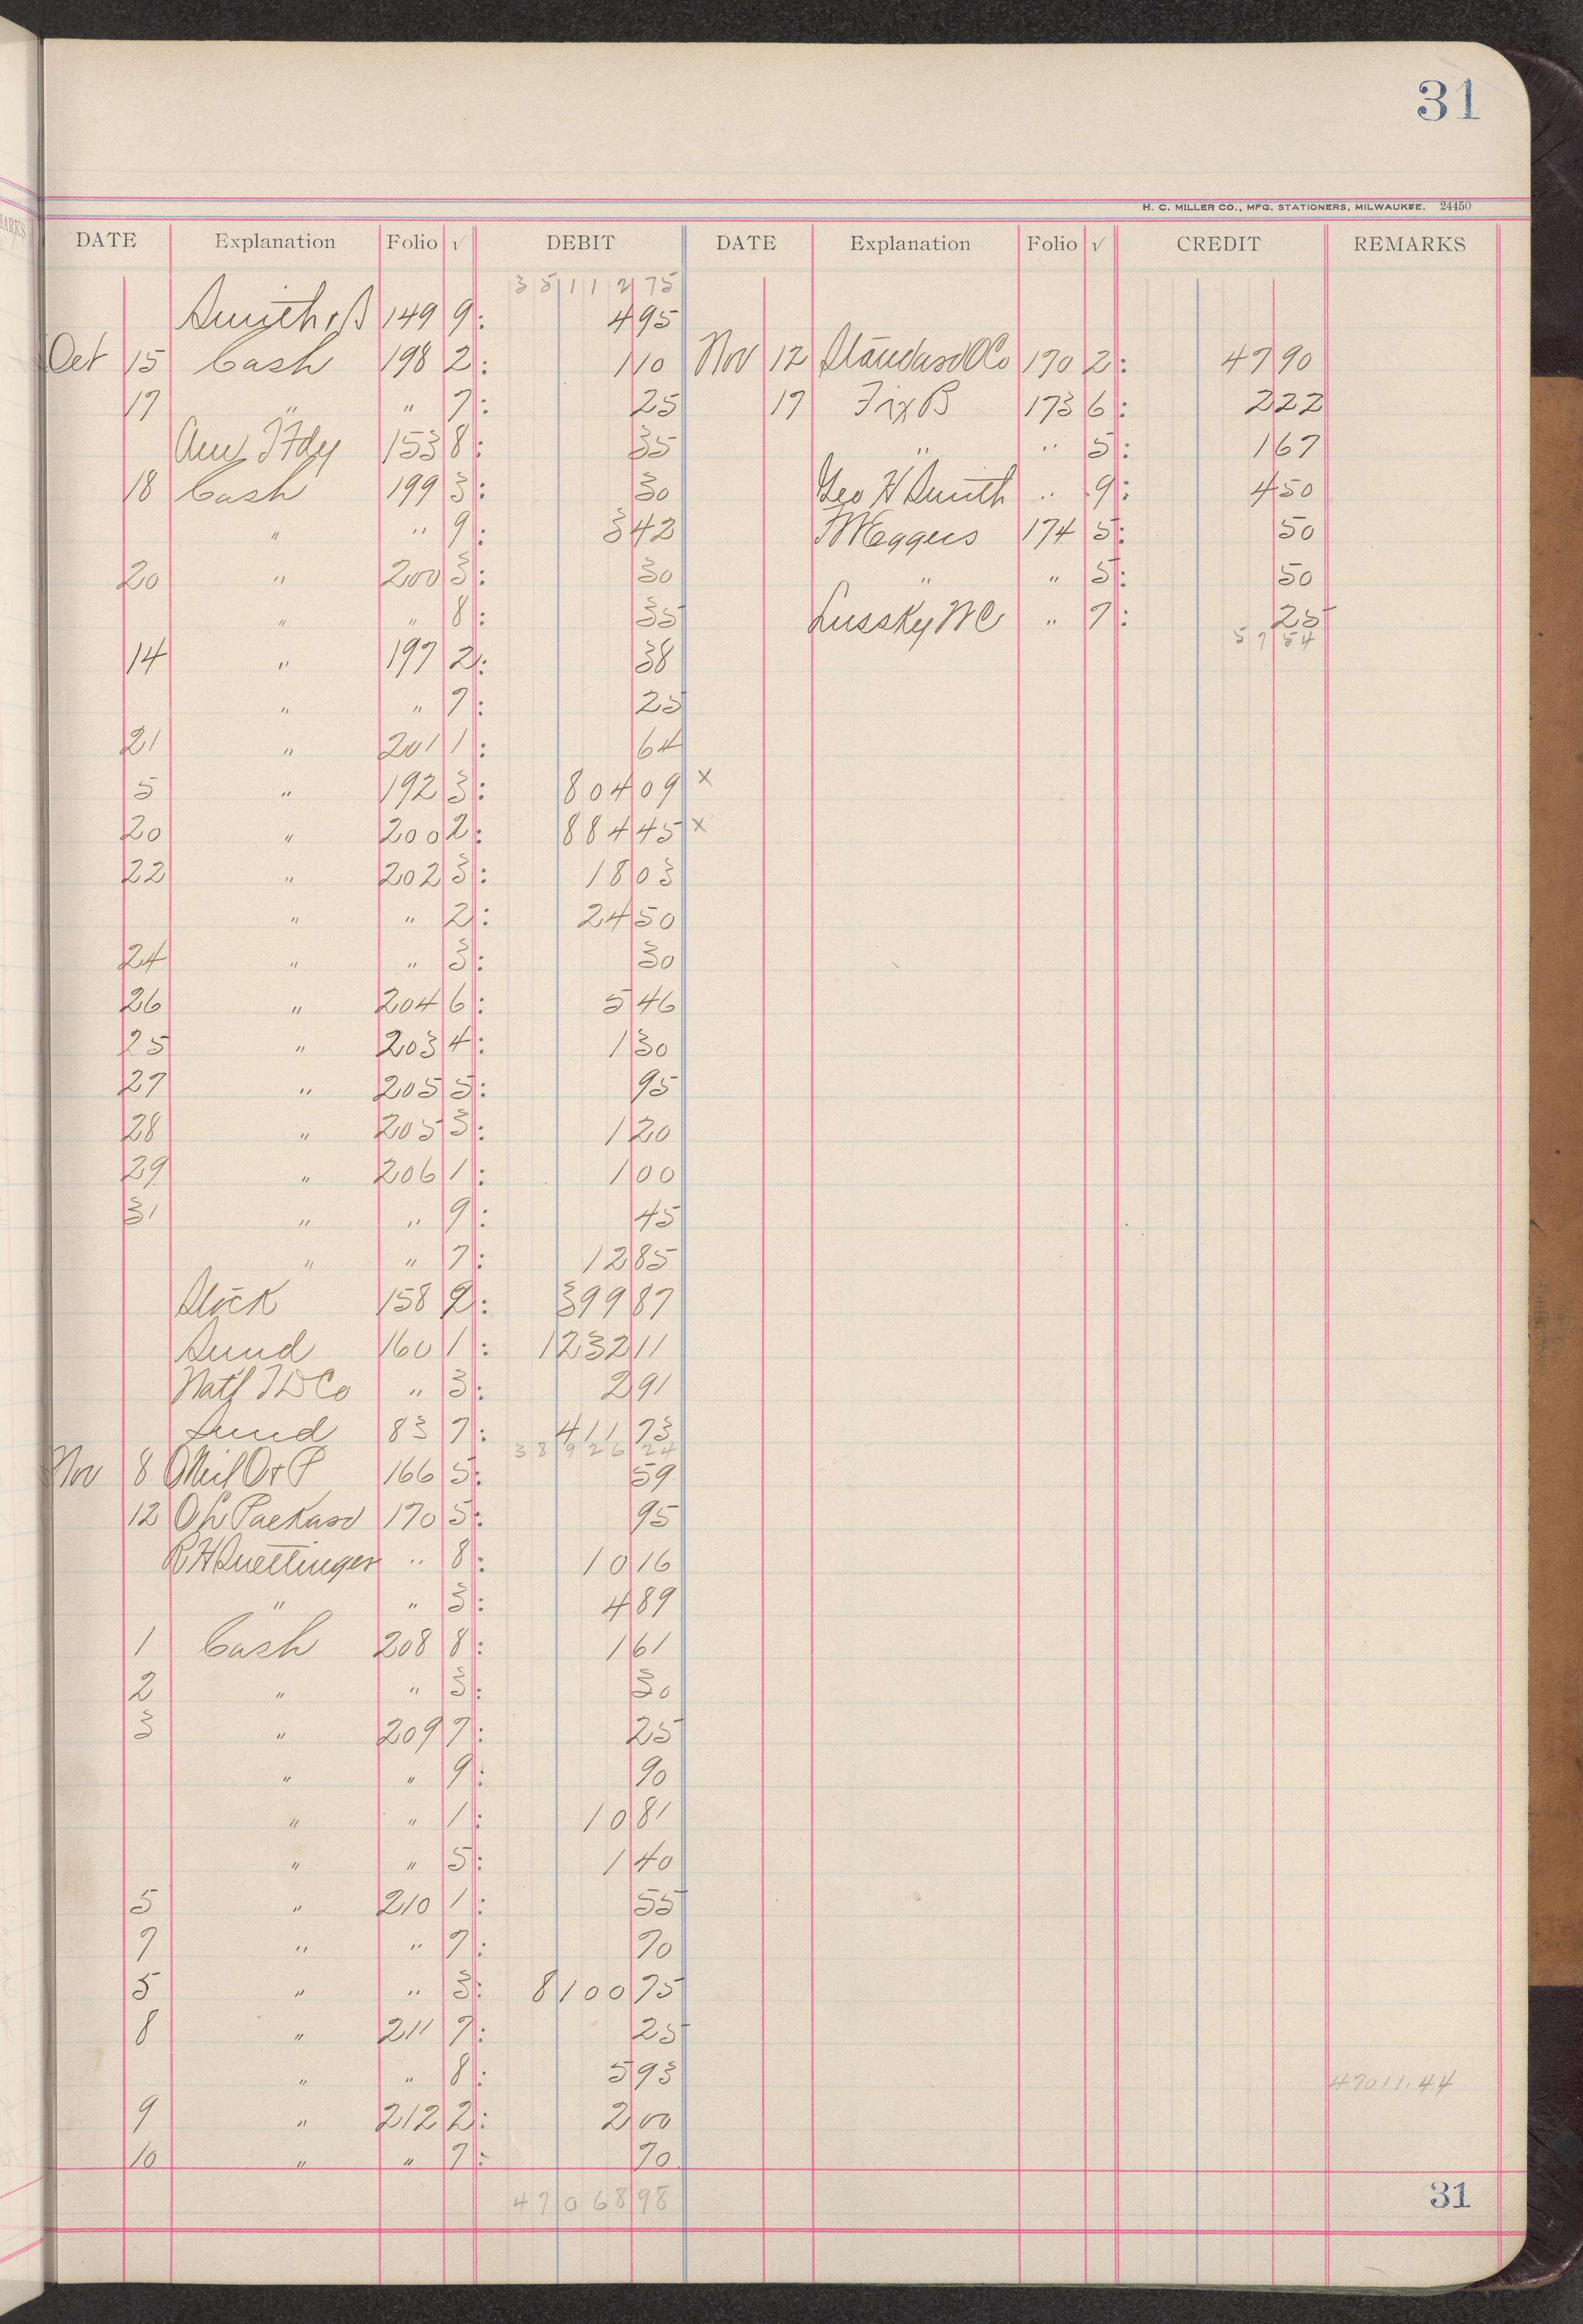 31
H. C. MILLER CO., MFG. STATIONERS, MILWAUKEE. 24450
DATE Explanation Folio √ DEBIT DATE Explanation Folio √ CREDIT REMARKS
35112 75
Smith 149 9: 4 95
Oct 15 Cash 198 2: 1 10 Nov 12 Standard O Co 170 2: 47 90
17 " " 7: 25 17 Fix B 173 6: 2 22
Am 153 8: 35 " " 5: 1 67
18 Cash 199 3: 30 Geo H Smith " 9: 4 50
" " 9: 3 42 Meggers 174 5: 50
20 " 200 3: 30 " " 5: 50
" " 8: 35 Lussky W C " 7: 25
57 54
14 " 197 2: 38
" " 7: 25
21 " 201 1: 64
5 " 192 3: 804 09 x
20 " 200 2: 884 45 x
22 " 202 3: 18 03
" " 2: 24 50
24 " " 3: 30
26 " 204 6: 5 46
25 " 203 4: 1 30
27 " 205 5: 95
28 " 205 3: 1 20
29 " 206 1: 1 00
31 " " 9: 45
" " 7: 12 85
Stock 158 2: 399 87
Sund 160 1: 1232 11
Natl I D Co " 3: 2 91
Sund 83 7: 411 73
38926 24
Nov 8 166 5: 59
12 Packard 170 5: 95
R H Quettinger " 8: 10 16
" " 3: 4 89
1 Cash 208 8: 1 61
2 " " 3: 30
3 " 209 7: 25
" " 9: 90
" " 1: 10 81
" " 5: 1 40
5 " 210 1: 55
7 " " 7: 70
5 " " 3: 8100 75
8 " 211 7: 25
" " 8: 5 93
47011.44
9 " 212 2: 2 00
10 " " 7: 70
47068 98
31